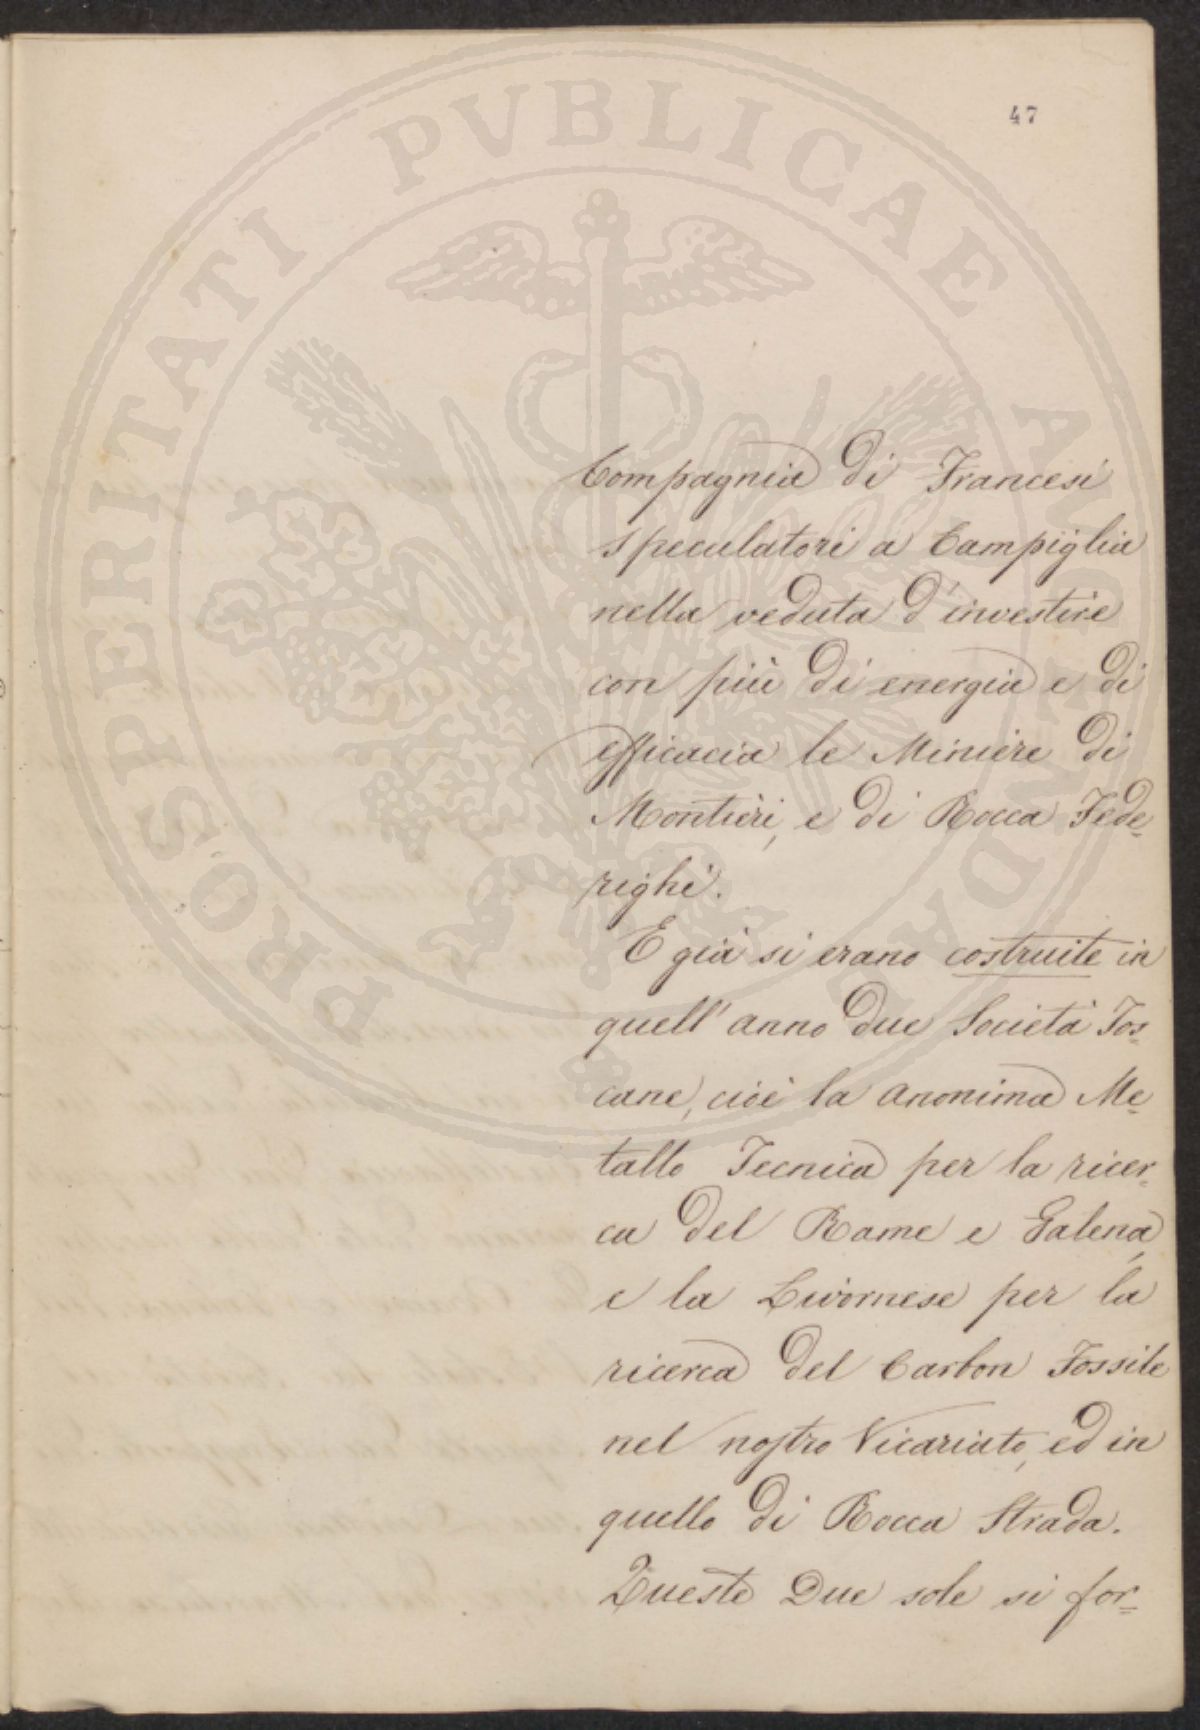 47
PROSPERITATI PVBLICAE AVGENDAE
Compagnia di Francesi
speculatori a Campiglia
nella veduta d'investire
con più di energia e di
efficacia le Miniere di
Montieri, e di Rocca Fede=
righi.
E già si erano costruite in
quell'anno due Società Tos=
cane, cioè la anonima Me=
tallo Tecnica per la ricer=
ca del Rame e Galena,
e la Livornese per la
ricerca del Carbon Fossile
nel nostro Vicariato, ed in
quello di Rocca Strada.
Queste due sole si for=